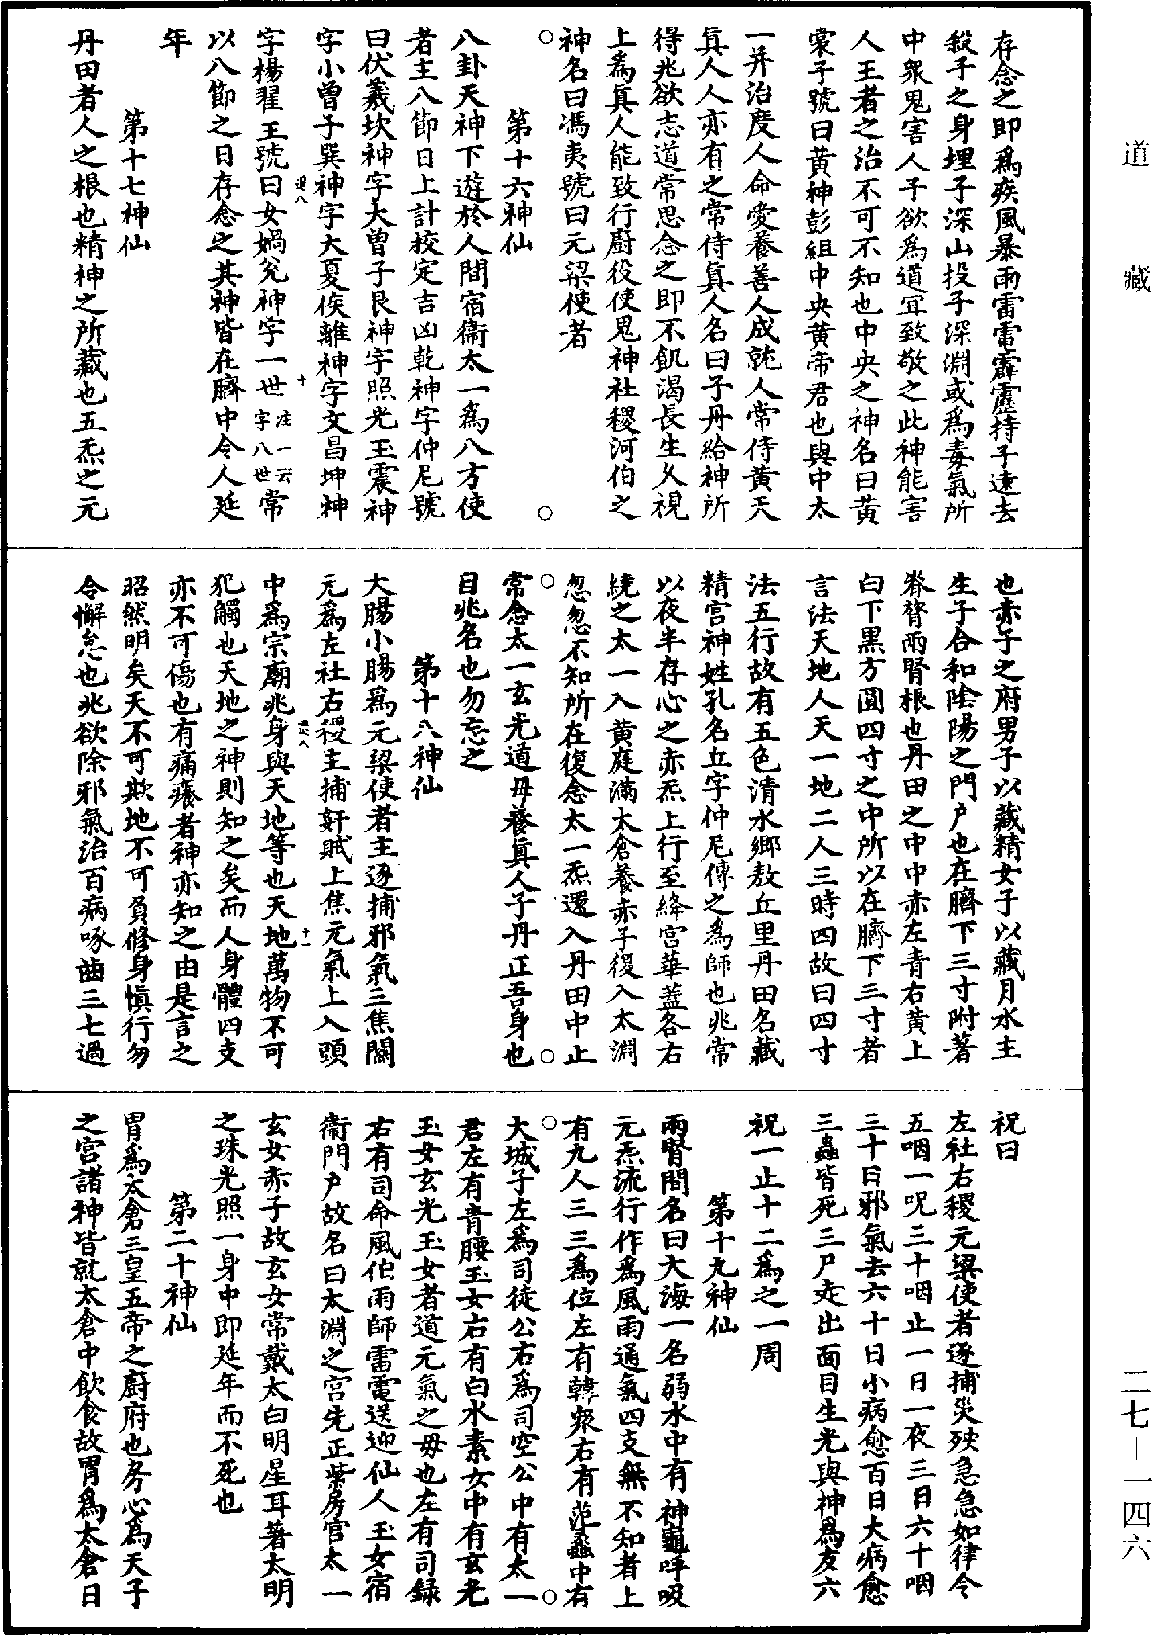 道藏
二七—一四六
存念之即爲疾風暴雨雷電霹靂持子遠去
殺子之身埋子深山投子深淵或爲毒氣所
中衆鬼害人子欲爲道宜致敬之此神能害
人王者之治不可不知也中央之神名曰黃
裳子號曰黃神彭組中央黃帝君也與中太
一并治度人命愛養善人成就人常侍黃天
真人人亦有之常侍真人名曰子丹給神所
得兆欲志道常思念之即不飢渴長生久視
上爲真人能致行廚役使鬼神社稷河伯之
神名曰馮夷號曰元梁使者
第十六神仙
八卦天神下遊於人間宿衞太一爲八方使
者主八節日上計校定吉凶乾神字仲尼號
曰伏羲坎神字大曾子艮神字照光玉震神
字小曾子巽神字大夏侯離神字文昌坤神
字楊翟王號曰女媧兌神字一世注一云字八世常
以八節之日存念之其神皆在臍中令人延
年
第十七神仙
丹田者人之根也精神之所藏也五炁之元
也赤子之府男子以藏精女子以藏月水主
生子合和陰陽之門戶也在臍下三寸附著
脊膂兩腎根也丹田之中中赤左青右黃上
白下黑方圓四寸之中所以在臍下三寸者
言法天地人天一地二人三時四故曰四寸
法五行故有五色清水鄉敖丘里丹田名藏
精宮神姓孔名丘字仲尼傳之爲師也兆常
以夜半存心之赤炁上行至絳宮華蓋各右
繞之太一入黃庭滿太倉養赤子復入太淵
忽忽不知所在復念太一炁還入丹田中止
常念太一玄光道母養真人子丹正吾身也
自兆名也勿忘之
第十八神仙
大腸小腸爲元梁使者主逐捕邪氣三焦關
元爲左社右稷主捕奸賊上焦元氣上入頭
中爲宗廟兆身與天地等也天地萬物不可
犯觸也天地之神則知之矣而人身體四支
亦不可傷也有痛癢者神亦知之由是言之
昭然明矣天不可欺地不可負修身慎行勿
令懈怠也兆欲除邪氣治百病啄齒三七過
祝曰
左社右稷元梁使者逐捕災殃急急如律令
五咽一呪三十咽止一日一夜三日六十咽
三十日邪氣去六十日小病愈百日大病愈
三蟲皆死三尸走出面目生光與神爲友六
祝一止十二爲之一周
第十九神仙
兩腎間名曰大海一名弱水中有神龜呼吸
元炁流行作爲風雨通氣四支無不知者上
有九人三三爲位左有韓衆右有范蠡中有
大城子左爲司徒公右爲司空公中有太一
君左有青腰玉女右有白水素女中有玄光
玉女玄光玉女者道元氣之母也左有司錄
右有司命風伯雨師雷電送迎仙人玉女宿
衞門戶故名曰太淵之宮先正紫房宮太一
玄女赤子故玄女常戴太白明星耳著太明
之珠光照一身中即延年而不死也
第二十神仙
胃爲太倉三皇五帝之廚府也房心爲天子
之宮諸神皆就太倉中飲食故胃爲太倉日